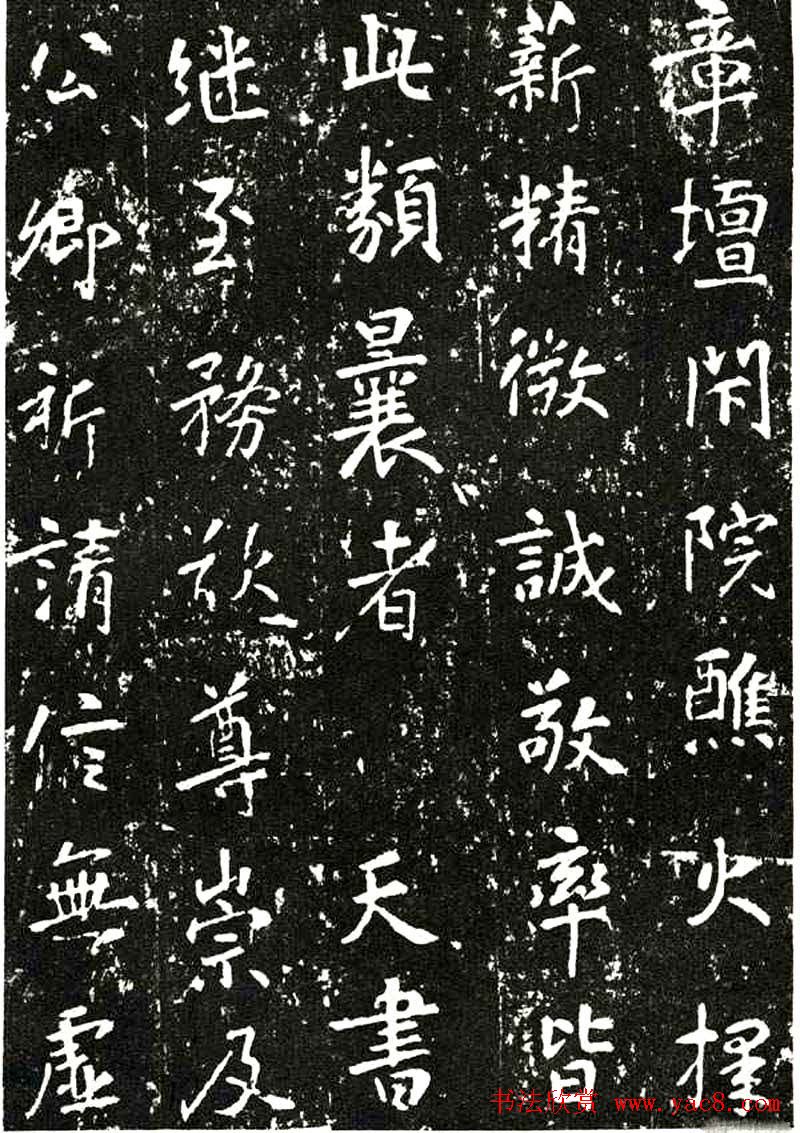 章壇閇院醮火擇
薪精微誠敬率皆
此類曩者 天書
继至務欲尊崇及
公卿祈請信無虛
书法欣赏 www.yac8.com